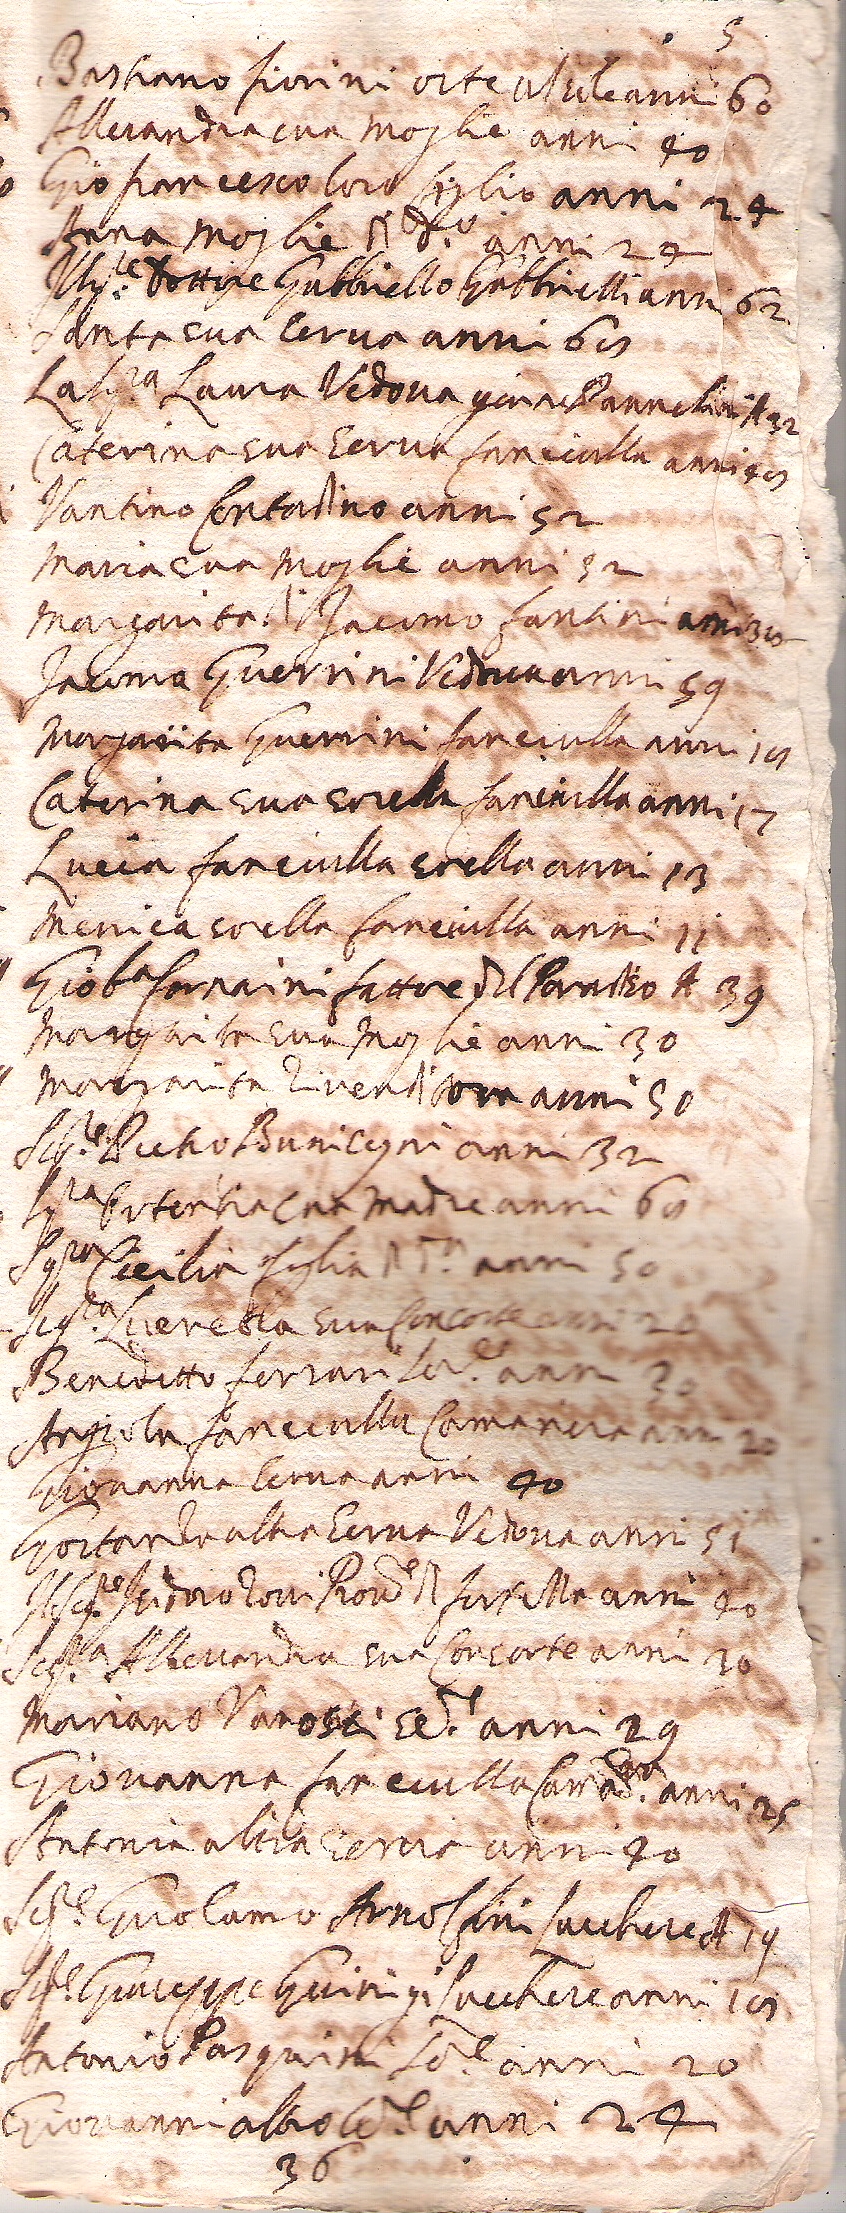 5
Bastiano fiorini oste anni 60
Allexandra sua moglie anni 40
Gio francesco loro figlio anni 24
Anna moglie di do anni 24
Dottore Gabbriello Gabbrielli anni 62
Santa sua serva anni 60
La Sig.ra Laura Vedova Pannelini A 32
Caterina sua serva fanciulla anni
Santino Contadino anni 52
Maria sua moglie anni 32
Margarita di Jacomo fantini anni 30
Jacoma Guerrini Vedova anni 59
Margarita Guerrini fanciulla anni 19
Caterina sua sorella fanciulla anni 17
Lucia fanciulla sorella anni 13
Menica sorella fanciulla anni 11
Gio ba fornaini fattore del Paradiso A 39
Margarita sua Moglie anni 30
Margarita Rivenditora anni 50
Sig.re Pietro Buninsegni anni 32
Sig.ra Ortensia sua madre anni 60
Sig.ra Cicilia figlia di d.a anni 50
Sig.ra Lucretia sua Consorte anni 20
Benedetto ferrari Ser.re anni 30
Angiola fanciulla Camariera anni 20
Giovanna serva anni 40
altra serva Vedova anni 51
Il Sig.re Isidoro anni 40
Sig.ra Allexandra sua Consorte anni 30
Mariano Se.re anni 29
Giovanna fanciulla Cam.ra anni 25
Antonia altra serva anni 40
Sig.re Girolamo Arnolfini Lucchese A 19
Sig.re Giuseppe Guinigi Lucchese anni 19
Antonio Pasquini Se.re anni 20
Giovanni altro Se.re anni 24
36